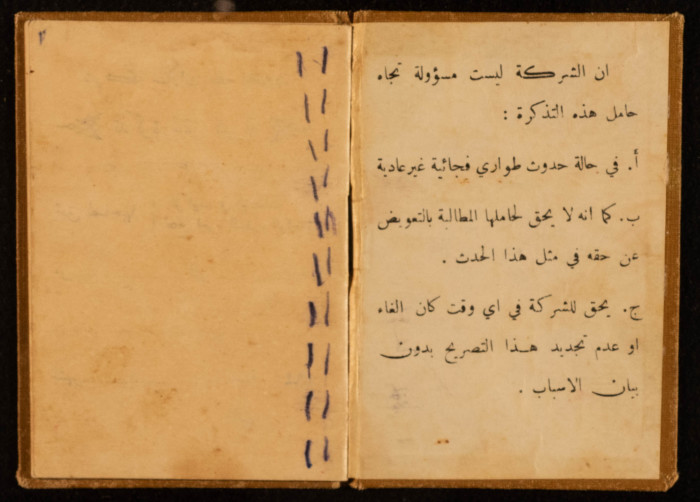 ان الشركة ليست مسؤولة تجاه
حامل هذه التذكرة :
أ. في حالة حدوث طواري فجائية غيرعادية
ب. كما انه لا يحق لحاملها المطالبة بالتعويض
عن حقه في مثل هذا الحدث .
ج. يحق للشركة في اي وقت كان الغاء
او عدم تجديد هذا التصريح بدون
بيان الاسباب .